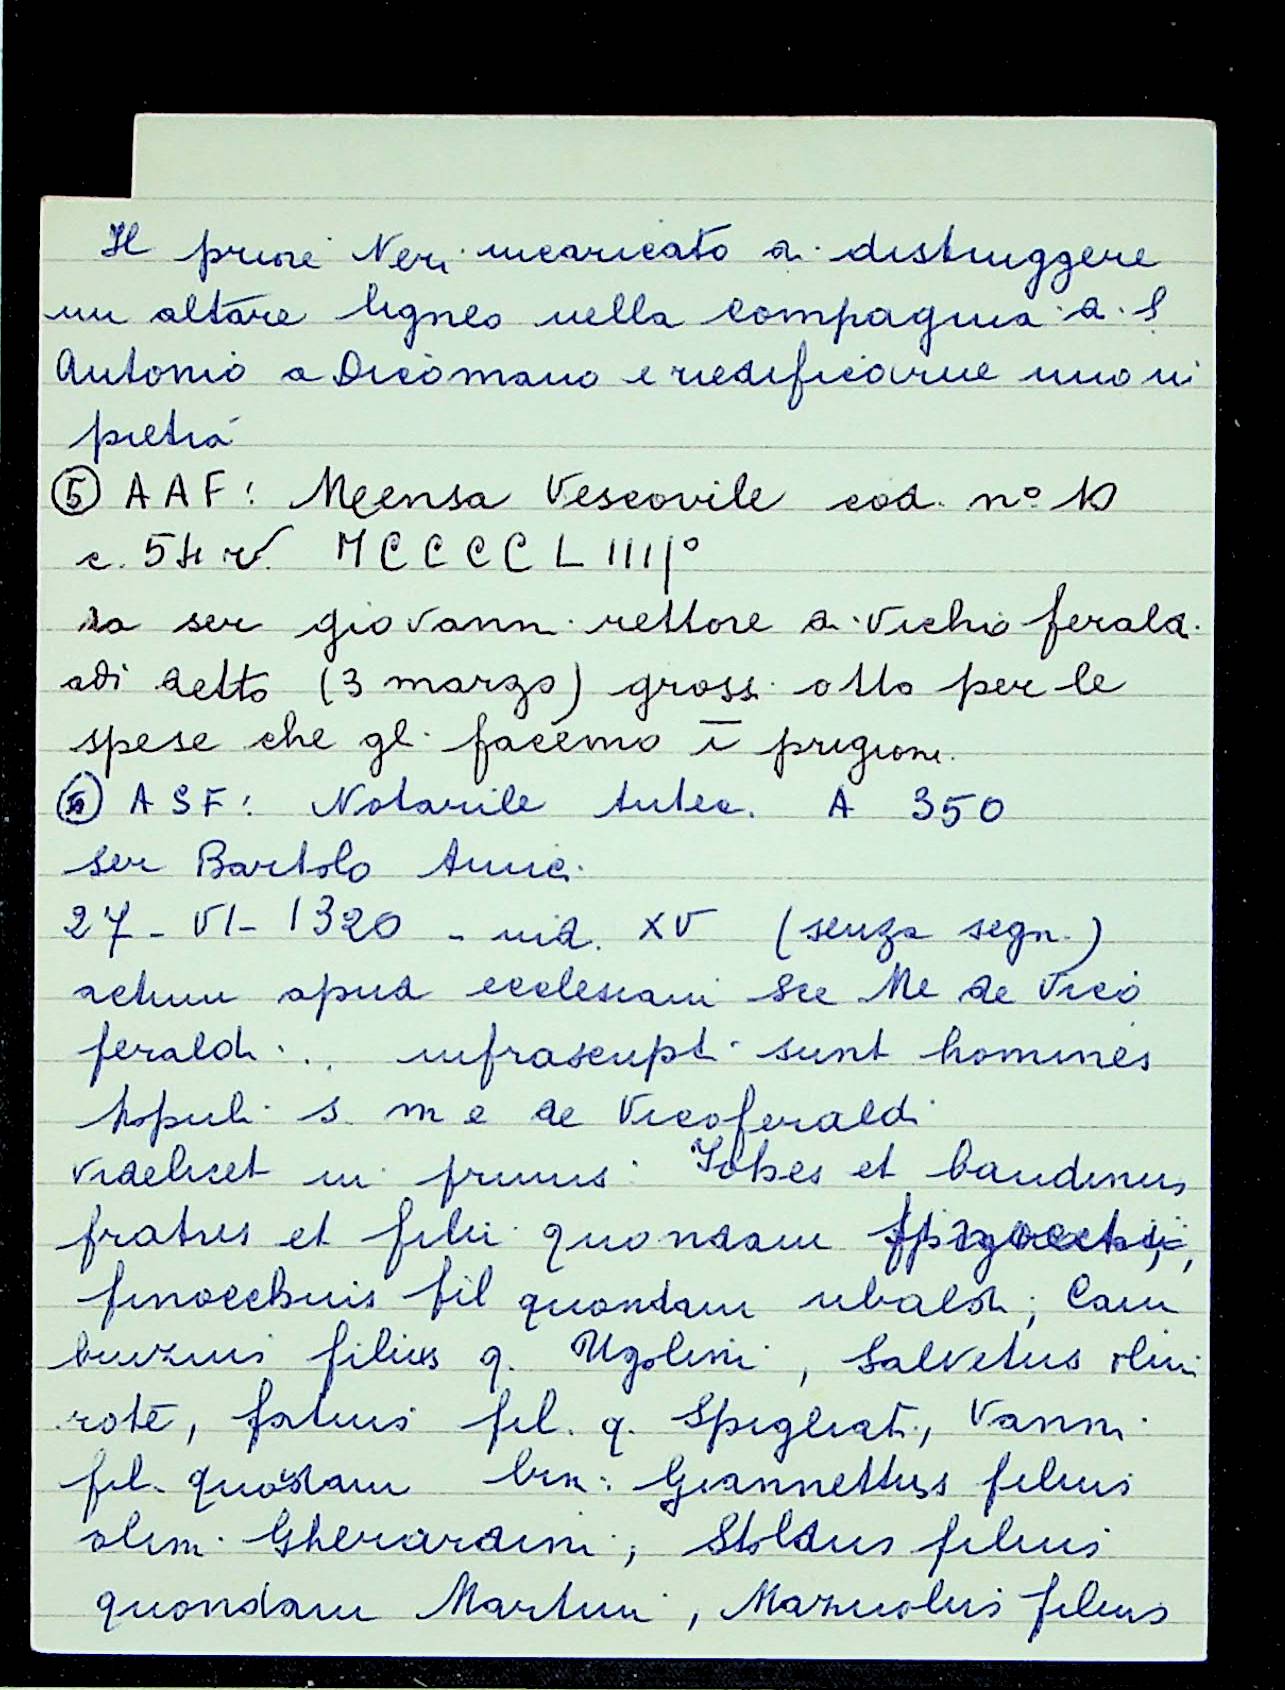 Il priore Neri incaricato di distruggere
un altare ligneo nella compagnia di S
Antonio a Dicomano e riedificarne uno in
pietra
⑤ AAF: Mensa Vescovile cod. n° 10
c. 54 v. MCCCCLIIII°
da ser giovanni rettore di Vichio ferald.
adi detto (3 marzo) grossi otto per le
spese che gli facemo ī prigione
⑥ ASF: Notarile Antec. A 350
ser Bartolo Amici
27-VI-1320 - ind. XV (senza segn.)
actum apud ecclesiam Sce Me de Vico
feraldi .. infrascripti sunt homines
populi s. m e de Vicoferaldi
videlicet in primis: Johes et baudinus
fratres et filii quondam
finocchius fil quondam ubaldi; Cam
buzius filius q. Ugolini, Salvetus olim
rote, fatius fil. q. Spigliati, Vanni
fil. quondam bin: Giannettus filius
olim Gherardini; Stoldus filius
quondam Martini, Mazuolus filius